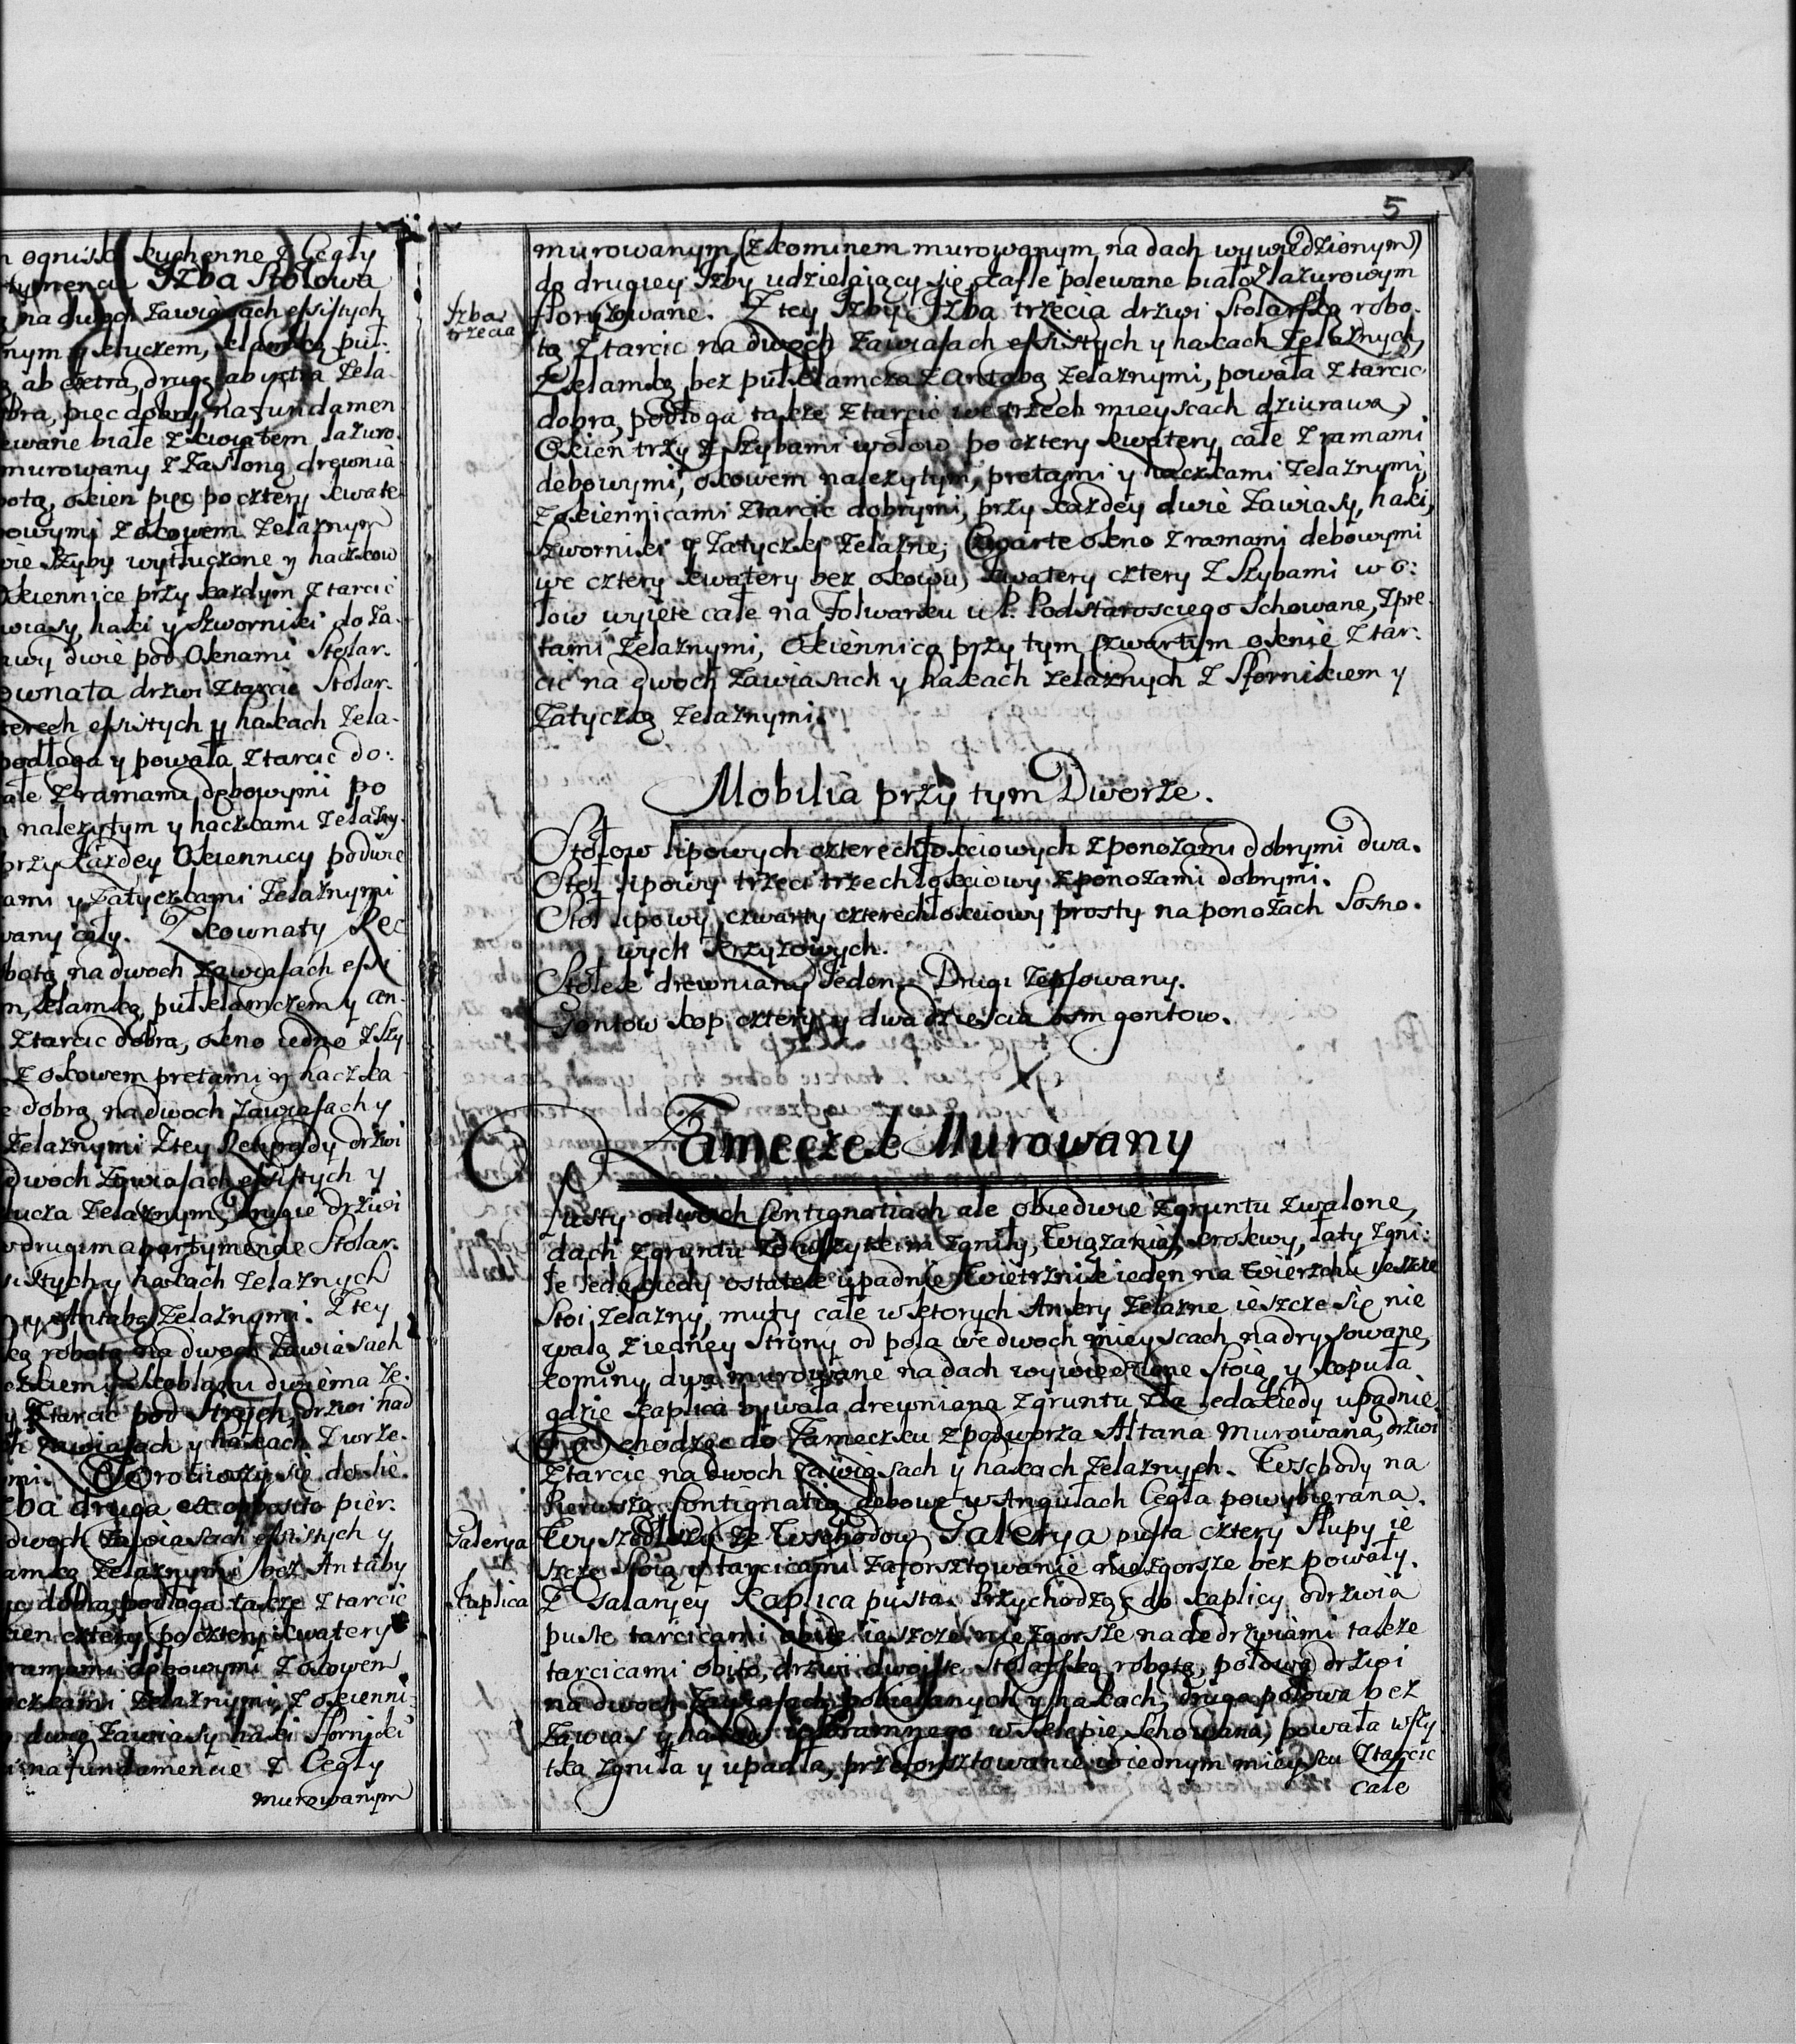 n ognisko kuchenne z Cegły
tymencie Izba Stołowa
na dwoch zawiasach essistych
nym y kluczem, klamką puł:
ab extra, drugą ab intra żela-
bra, piec dobry na fundamen
ewane białe z kwiatem lazuro.
murowany z zasłoną drewnia
botą, okien pięc po cztery kwate
bowymi z okowem żelaznym
wie szyby wytłuczone y haczkow
Okiennice przy każdym z tarcic
wiasy, haki y szworniki do za-
awy dwie pod Oknami Stolar.
ownata drzwi z tarcic Stolar.
terech essistych y hakach żela-
podłoga y powała z tarcic do:
ałe z ramami dębowymi po
należytym y haczkami żelazny-
przy każdey Okiennicy po dwie
ami y zatyczkami żelaznymi
wany cały. Z kownaty Re
botą na dwoch zawiasach essi
m, klamką, pułklamczem y an-
z tarcic dobra, okno iedno z szy
z okowem prętami y haczka
dobrą na dwoch zawiasach y
żelaznymi z tey Retyrady drzwi
dwoch zawiasach essistych y
lucza żelaznym, drugie drzwi
w drugim apartymencie Stolar.
sistych y hakach żelaznych
y Antabą żelaznymi. Z tey
ką robotą na dwoch zawiasach
y skoblami dwiema że.
y z tarcic pod strych, drzwi nad
ch zawiasach y hakach z wrze.
mi. Obrociwszy się do sie.
zba druga ex opposito pier.
dwoch zawiasach essistych y
amką żelaznymi bez Antaby
dobra, podłoga także z tarcic
ien cztery po cztery kwatery
ramami dębowymi z okowem
aczkami żelaznymi, z okienni
dwie zawiasy haki sforniki
na fundamencie z Cegły
murowanym
5
murowanym, (z kominem murowanym na dach wywiedzionym)
do drugiey Izby udzielaiący się kafle polewane biało z lazurowym
Izba
trzecia
floryzowane. Z tey Izby Izba trzecia drzwi Stolarską robo-
tą z tarcic na dwoch zawiasach essistych y hakach żelaznych,
z klamką bez pułklamcza z antabą żelaznymi, powała z tarcic
dobra, podłoga także z tarcic we trzech mieyscach dziurawa,
Okien trzy z szybami wołow po cztery kwatery całe z ramami
dębowymi, okowem należytym, prętami y haczkami żelaznymi,
z okiennicami z tarcic dobrymi, przy każdey dwie zawiasy, haki,
szworniki y zatyczki żelazne; Czwarte okno z ramami dębowymi
we cztery kwatery bez okowu, kwatery cztery z szybami w o:
łow wyięte całe na Folwarku u P. Podstarosciego schowane, z prę-
tami żelaznymi, Okiennica przy tym czwartym oknie z tar-
cic na dwoch zawiasach y hakach żelaznych z sfornikiem y
zatyczką żelaznymi.
Mobilia przy tym Dworze.
Stołow lipowych czterechłokciowych z ponożami dobrymi dwa.
Stoł lipowy trzeci trzechłokciowy z ponożami dobrymi.
Stoł lipowy czwarty czterechłokciowy prosty na ponożach Sosno.
wych krzyżowych.
Stołek drewniany Jeden, Drugi zepsowany.
Gontow kop cztery y dwadzieścia osm gontow.
Zameczek Murowany
Pusty o dwoch contignatiach ale obiedwie z gruntu zwalone,
dach z gruntu ze wszytkim zgniły, wiązania, krokwy, łaty zgni:
łe leda kiedy ostatek upadnie wietrznik ieden na wierzchu ieszcze
stoi żelazny, mury całe w ktorych Ankry żelazne ieszcze się nie
walą z iedney strony od pola we dwoch mieyscach nadrysowane,
kominy dwa murowane na dach wywiedzione stoią y kopuła
gdzie kaplica bywała drewniana z gruntu zła ledakiedy upadnie.
Wchodząc do Zameczku z podworza Altana murowana, drzwi
z tarcic na dwoch zawiasach y hakach żelaznych. Wschody na
Pierwszą contignatią dębowe w Angułach Cegła powybierana.
Galerya
Wyszedszy ze Wschodow Galerya pusta cztery słupy ie
szcze stoią y tarcicami zaforsztowanie niezgorsze bez powały.
Kaplica
Z Galaryey Kaplica pusta. Przychodząc do kaplicy odrzwia
puste tarcicami obite ieszcze niezgorsze nade drzwiami także
tarcicami obito, drzwi dwoiste Stolarską robotą, połowa drzwi
na dwoch zawiasach pobielanych y hakach, druga połowa bez
zawias y hakow u bramnego w sklepie schowana, powała wszy
tka zgniła y upadła, przeforsztowanie w iednym mieyscu z tarcic
całe